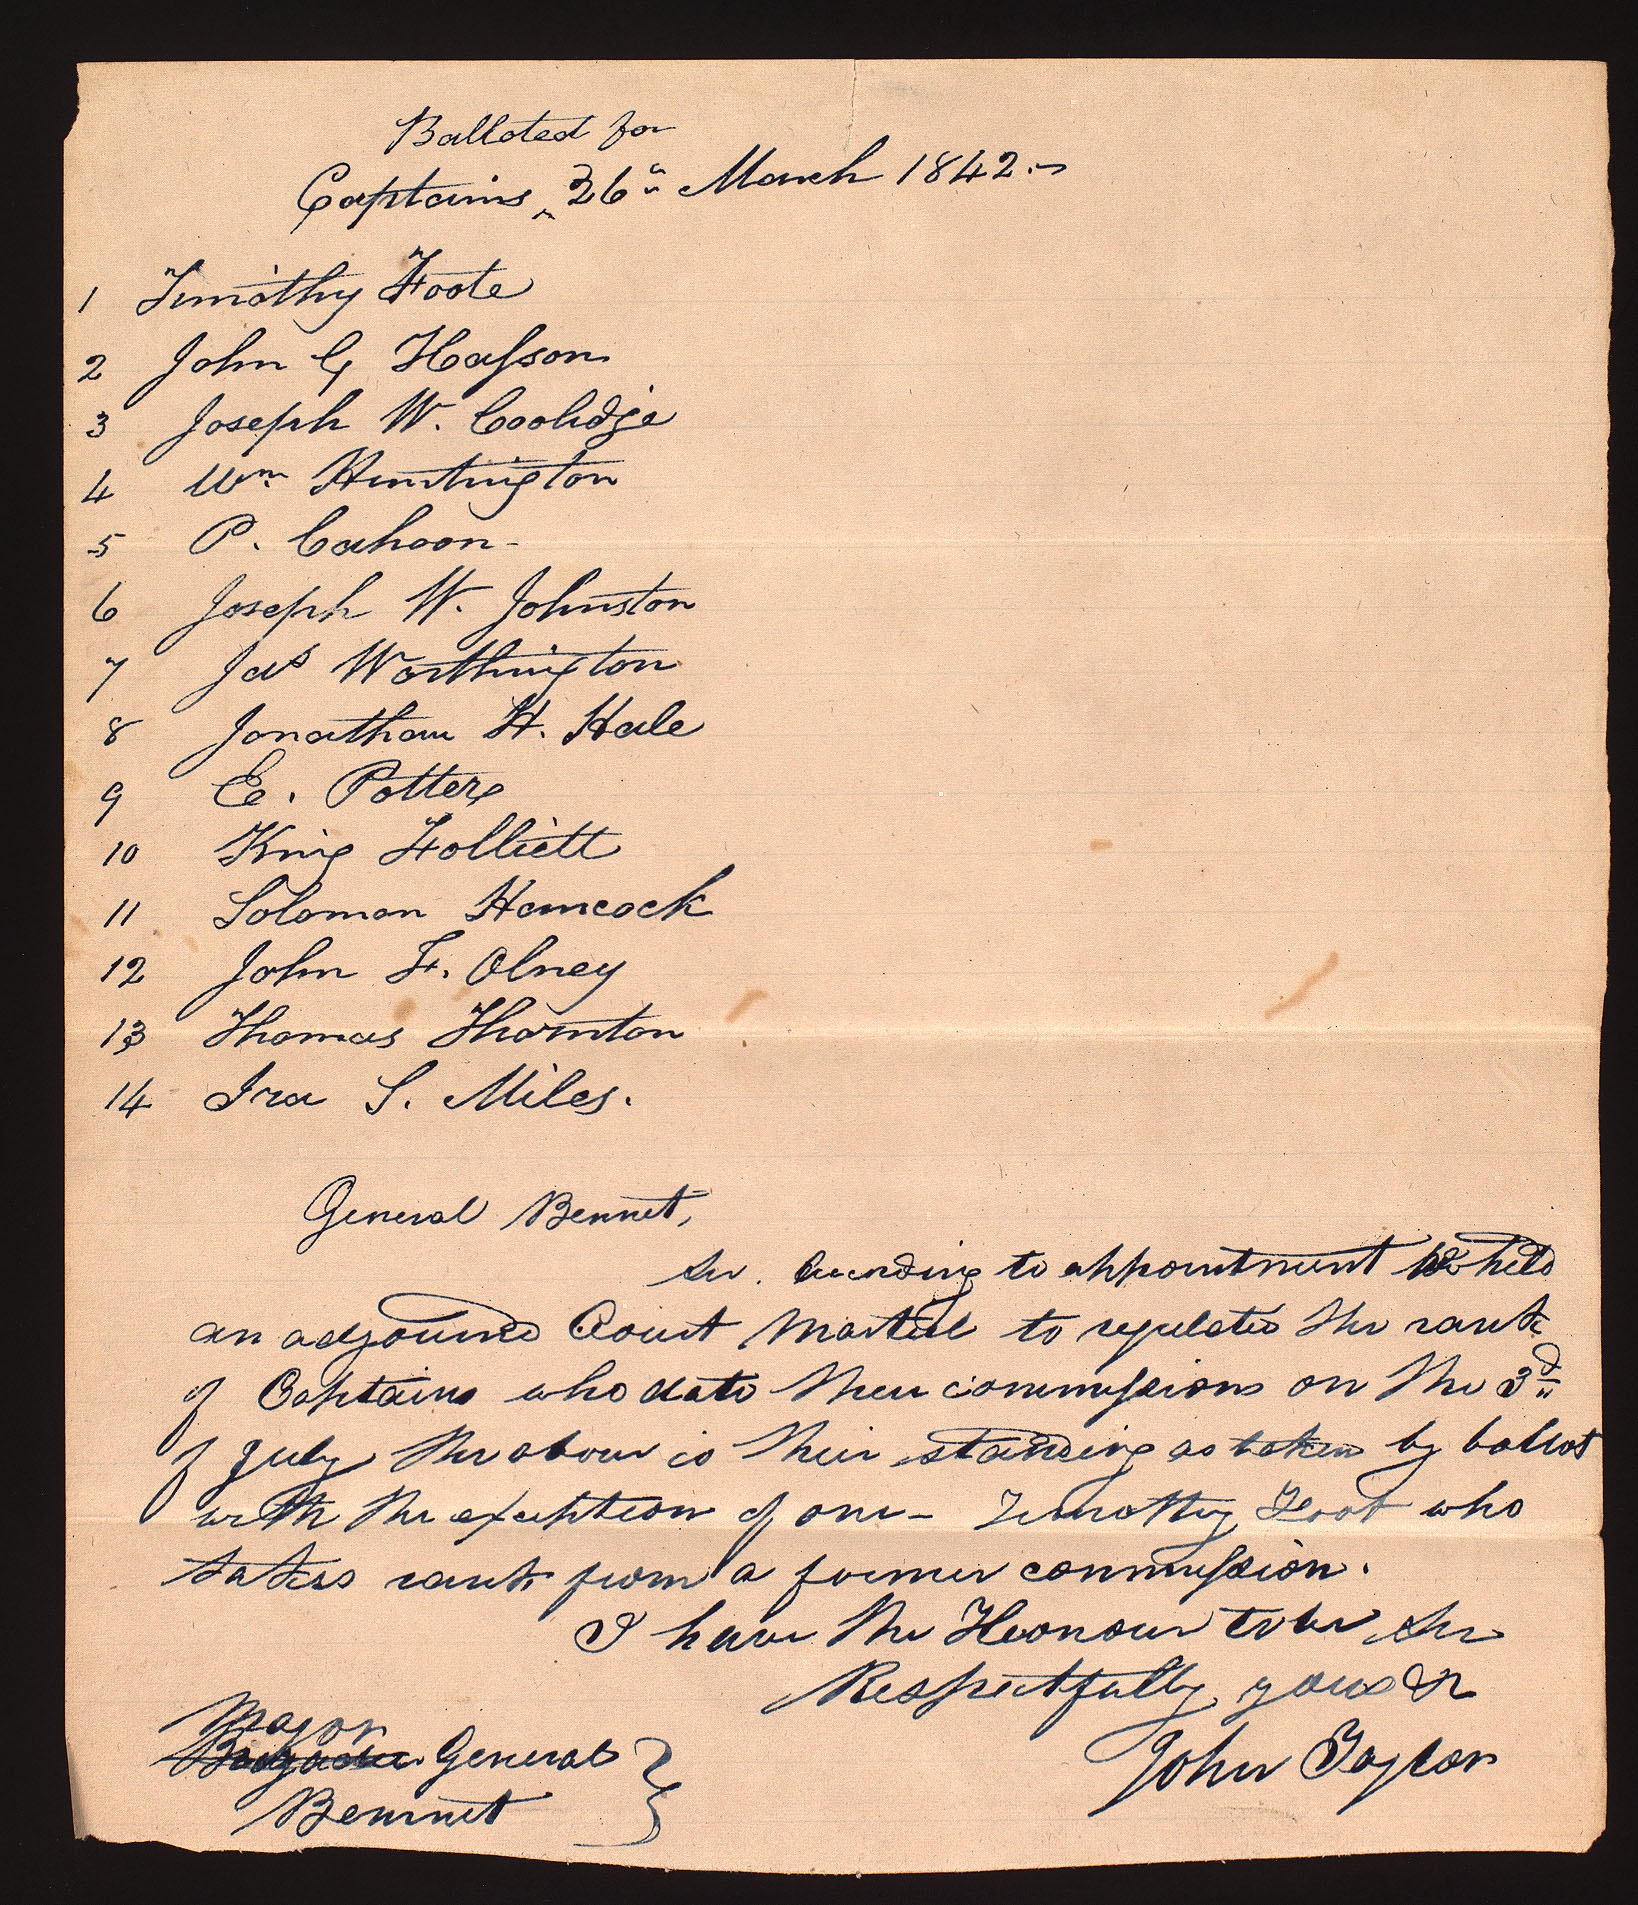 Balloted for
Captains, 26th March 1842.
1 Timothy Foote
2 John G Hasson
3 Joseph W. Coolidge
4 Wm. Huntington
5 P. Cahoon
6 Joseph W. Johnston
7 Jas Worthington
8 Jonathan H. Hale
9 E. Potter
10 King Folliett
11 Solomon Hancock
12 John F. Olney
13 Thomas Thornton
14 Ira S. Miles.
General Bennet,
Sir. According to appointment We held
an adjourned Court Martial to regulate the rank
of Captains who date their commissions on the 3d
of July the above is their standing as taken by ballot
with the exception of one - Timothy Foot who
takes rank from a former commission.
I have the Honour to be Sir
Respectfully yours &c
John Taylor
Major
Brigadier General
Bennet